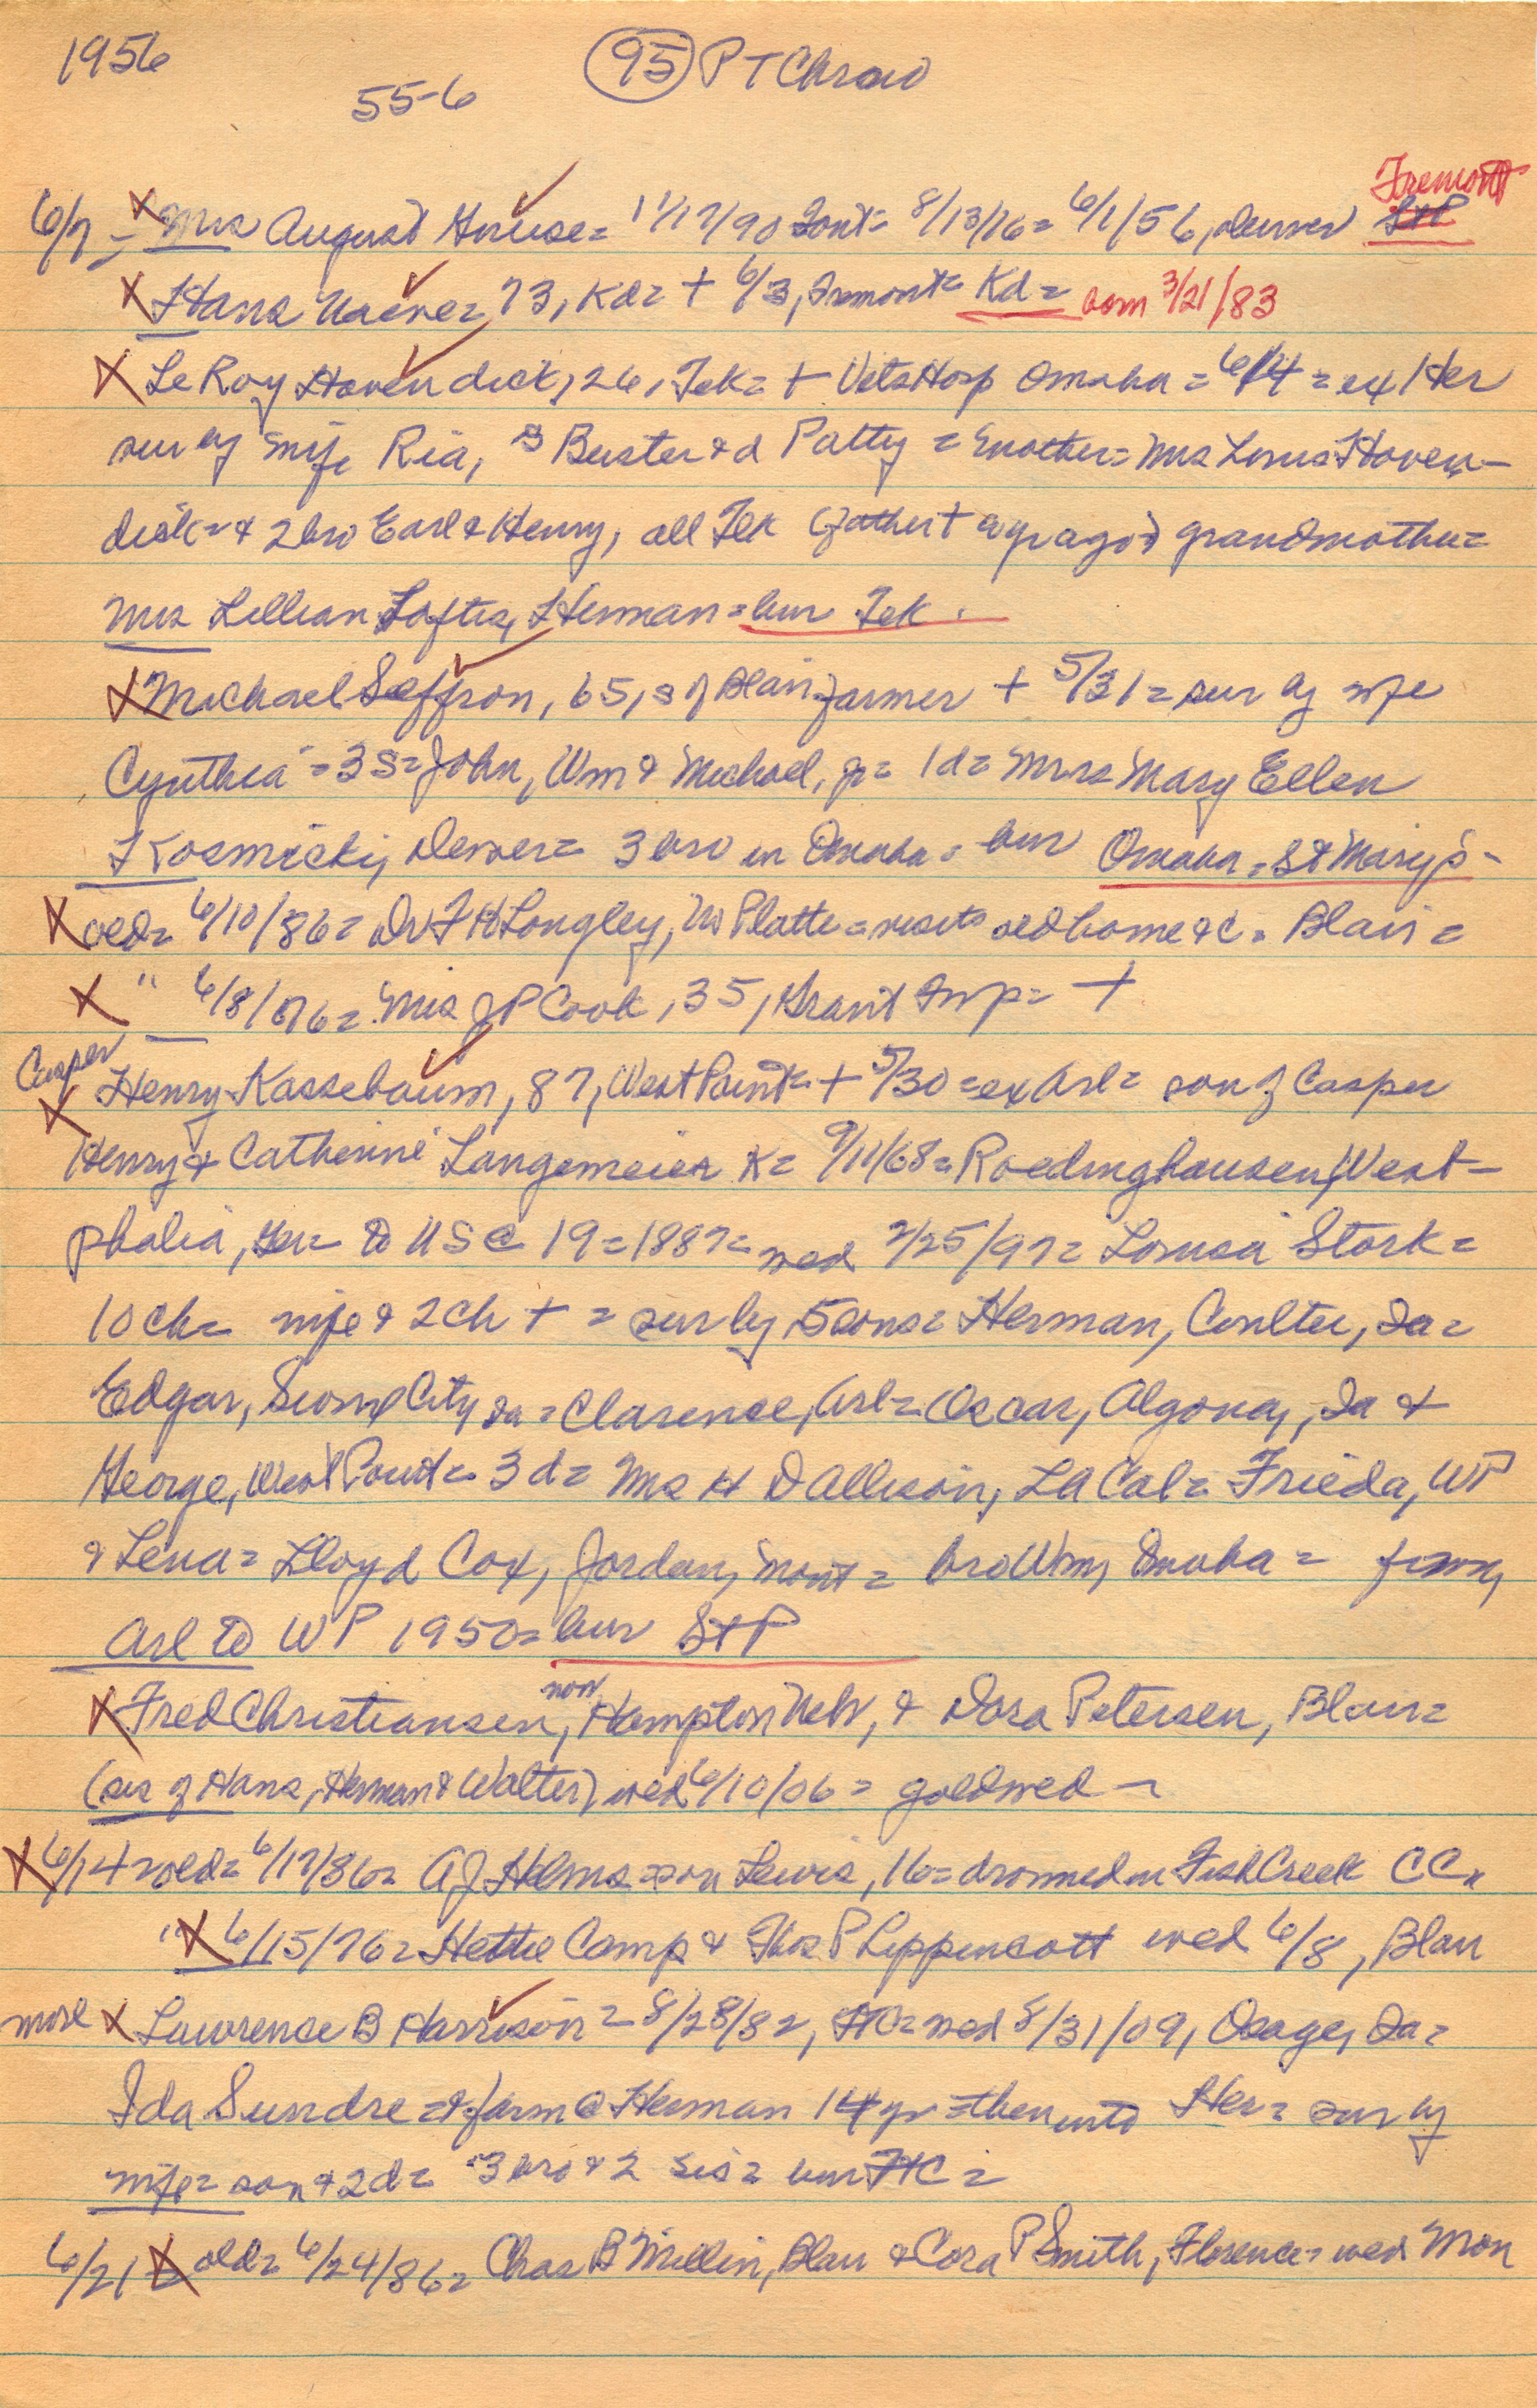 1956
55-6
(95) P T Chrono
Fremont
6/7 = X Mrs August Hruse = 11/17/90 Font = 8/13/16 = 6/1/56, Denver StP
X Hans Naeve, 73, Kd = + 6/3, Fremont = Kd = born 3/21/83
X LeRoy Hovendick, 26, Tek = + Vets Hosp Omaha = 6/4 = ex Her
sur by wife Ria, s Buster & d Patty = mother = Mrs Louis Hoven-
dick = & 2 bro Earl & Henry, all Tek (father + ago) grandmother =
Mrs Lillian Loftis, Herman = bur Tek.
X Michael Saffron, 65, s of Blair farmer + 5/31 = sur by wife
Cynthia = 3 s = John, Wm & Michael, jr = 1 d = Mrs Mary Ellen
Kosmicki, Denver = 3 bro in Omaha = bur Omaha = St Mary's -
X old = 6/10/86 = Dr F H Longley, No Platte = visits old home &c = Blair =
X " 6/8/76 = Mrs J P Cook, 35, Grant twp = +
Casper
X Henry Kassebaum, 87, West Point = + 5/30 = ex Arl = son of Casper
Henry & Catherine Langemeier K = 9/11/68 = Roedinghausen, West-
phalia, Ger = to US @ 19 = 1887 = wed 2/25/97 = Louisa Stork =
10 ch = wife & 2 ch + = sur by 5 sons = Herman, Coulter, Ia =
Edgar, Sioux City Ia = Clarence, Arl = Oscar, Algona, Ia &
George, West Point = 3 d = Mrs H D Allison, LA Cal = Frieda, WP
& Lena = Lloyd Cox, Jordan, Mont = bro Wm, Omaha = from
Arl to WP 1950 = bur StP
now
X Fred Christiansen, Hampton Nebr, & Dora Petersen, Blair =
(sis of Hans, Herman & Walter) wed 6/10/06 = gold wed -
X 6/14 = old = 6/17/86 = A J Helms = son Lewis, 16 = drowned in Fish Creek CC
" X 6/15/76 = Hettie Camp & Thos P Lippencott wed 6/8, Blair
more X Lawrence B Harrison = 8/28/82, FtC = wed 8/31/09, Osage, Ia =
Ida Sundre = & farm @ Herman 14 yr = then into Her = sur by
wife = son & 2 d = 3 bro & 2 sis = bur FtC =
6/21 X old = 6/24/86 = Chas B Millin, Blair & Cora P Smith, Florence = wed Mon